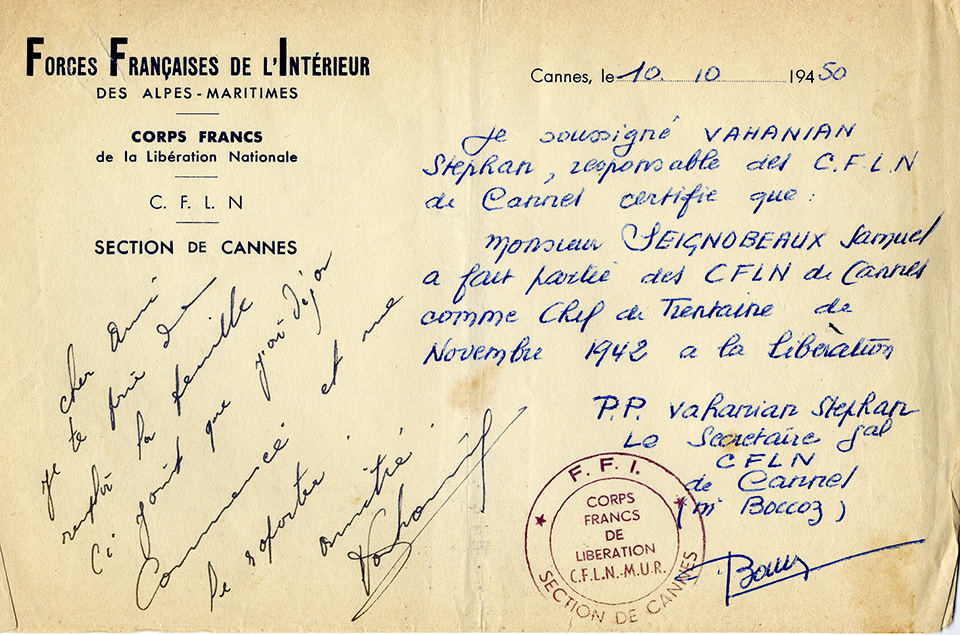 FORCES FRANÇAISES DE L'INTÉRIEUR
DES ALPES-MARITIMES
CORPS FRANCS
de la Libération Nationale
C. F. L. N
SECTION DE CANNES
Cannes, le 10. 10 194 50
Je soussigné VAHANIAN
Stephan, responsable des C.F.L.N
de Cannes certifie que :
Monsieur SEIGNOBEAUX Samuel
a fait partie des CFLN de Cannes
comme Chef de Trentaine de
Novembre 1942 a la Libération
P.P. Vahanian Stephan
Le Secretaire Gal
CFLN
de Cannes
(Mr Boccoz)
cher ami
je te prie de
remplir la feuille
ci joint que j'ai déja
Commencé et me
le
amitié
F. F. I.
CORPS
FRANCS
DE
LIBERATION
C.F.L.N.-M.U.R.
SECTION DE CANNES